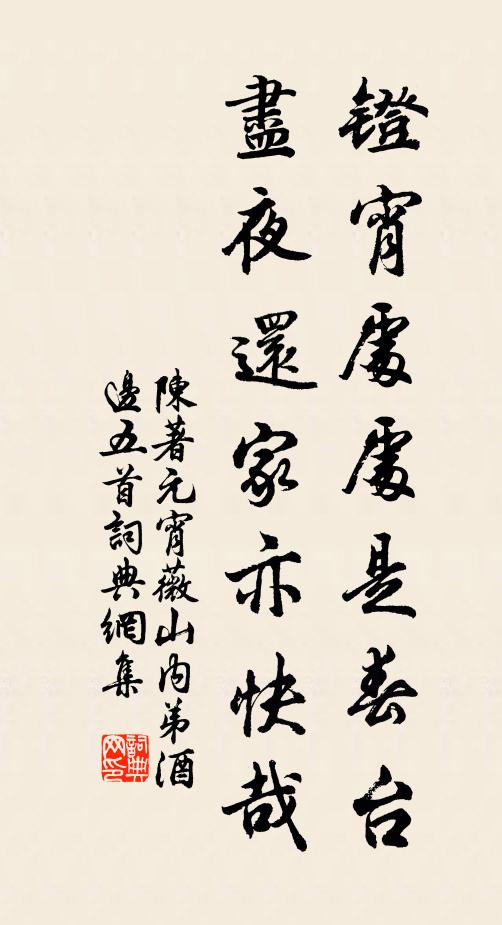 鐙宵處處是春台
盡夜還家亦快哉
陳著元宵薇山內弟酒
邊五首詞典網集
詞典
网印